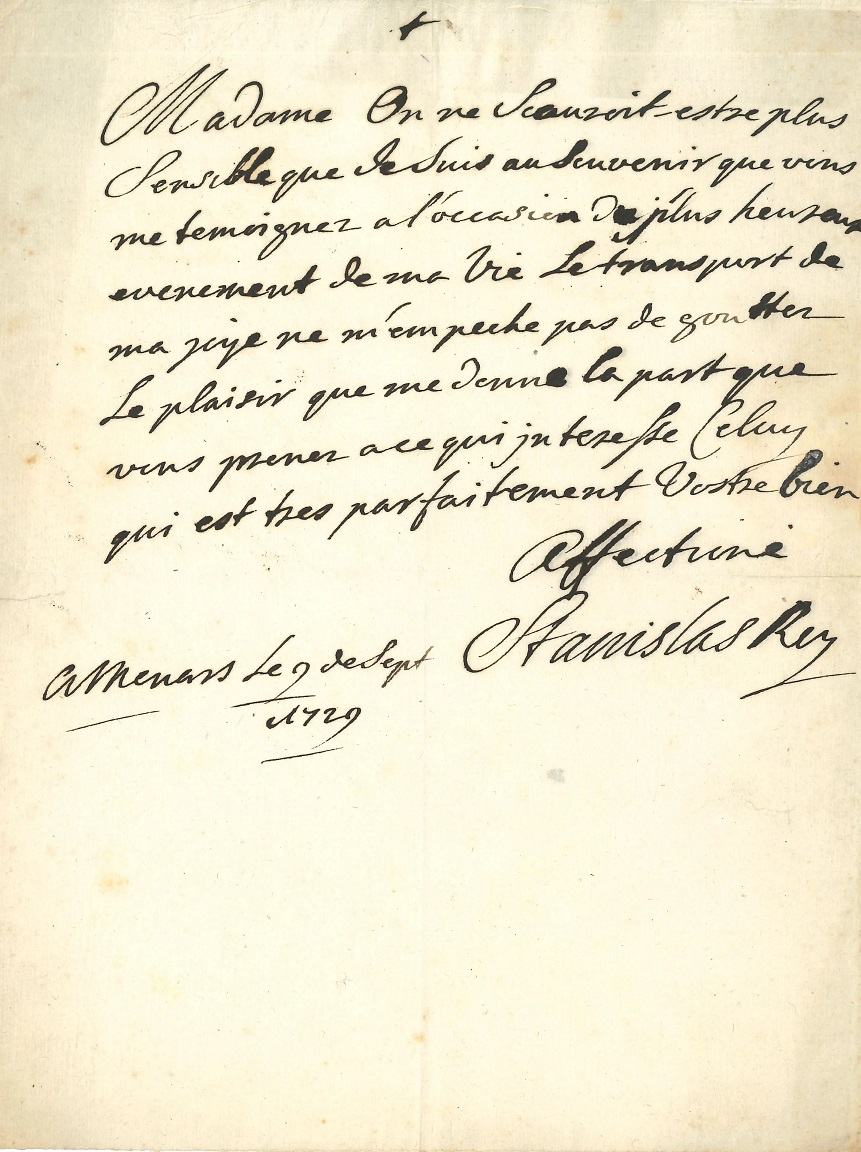 Madame On ne Scauroit estre plus
Sensible que Je Suis au Souvenir que vous
me temoignez a l'occasion du plus heureux
evenement de ma Vie Le transport de
ma joye ne m'empeche pas de goutter
Le plaisir que me donne la part que
vous prenez a ce qui jnteresse Celuy
qui est tres parfaitement Vostre bien
Affectioné
Stanislas Roy
A Menars Le 9 de Sept
1729